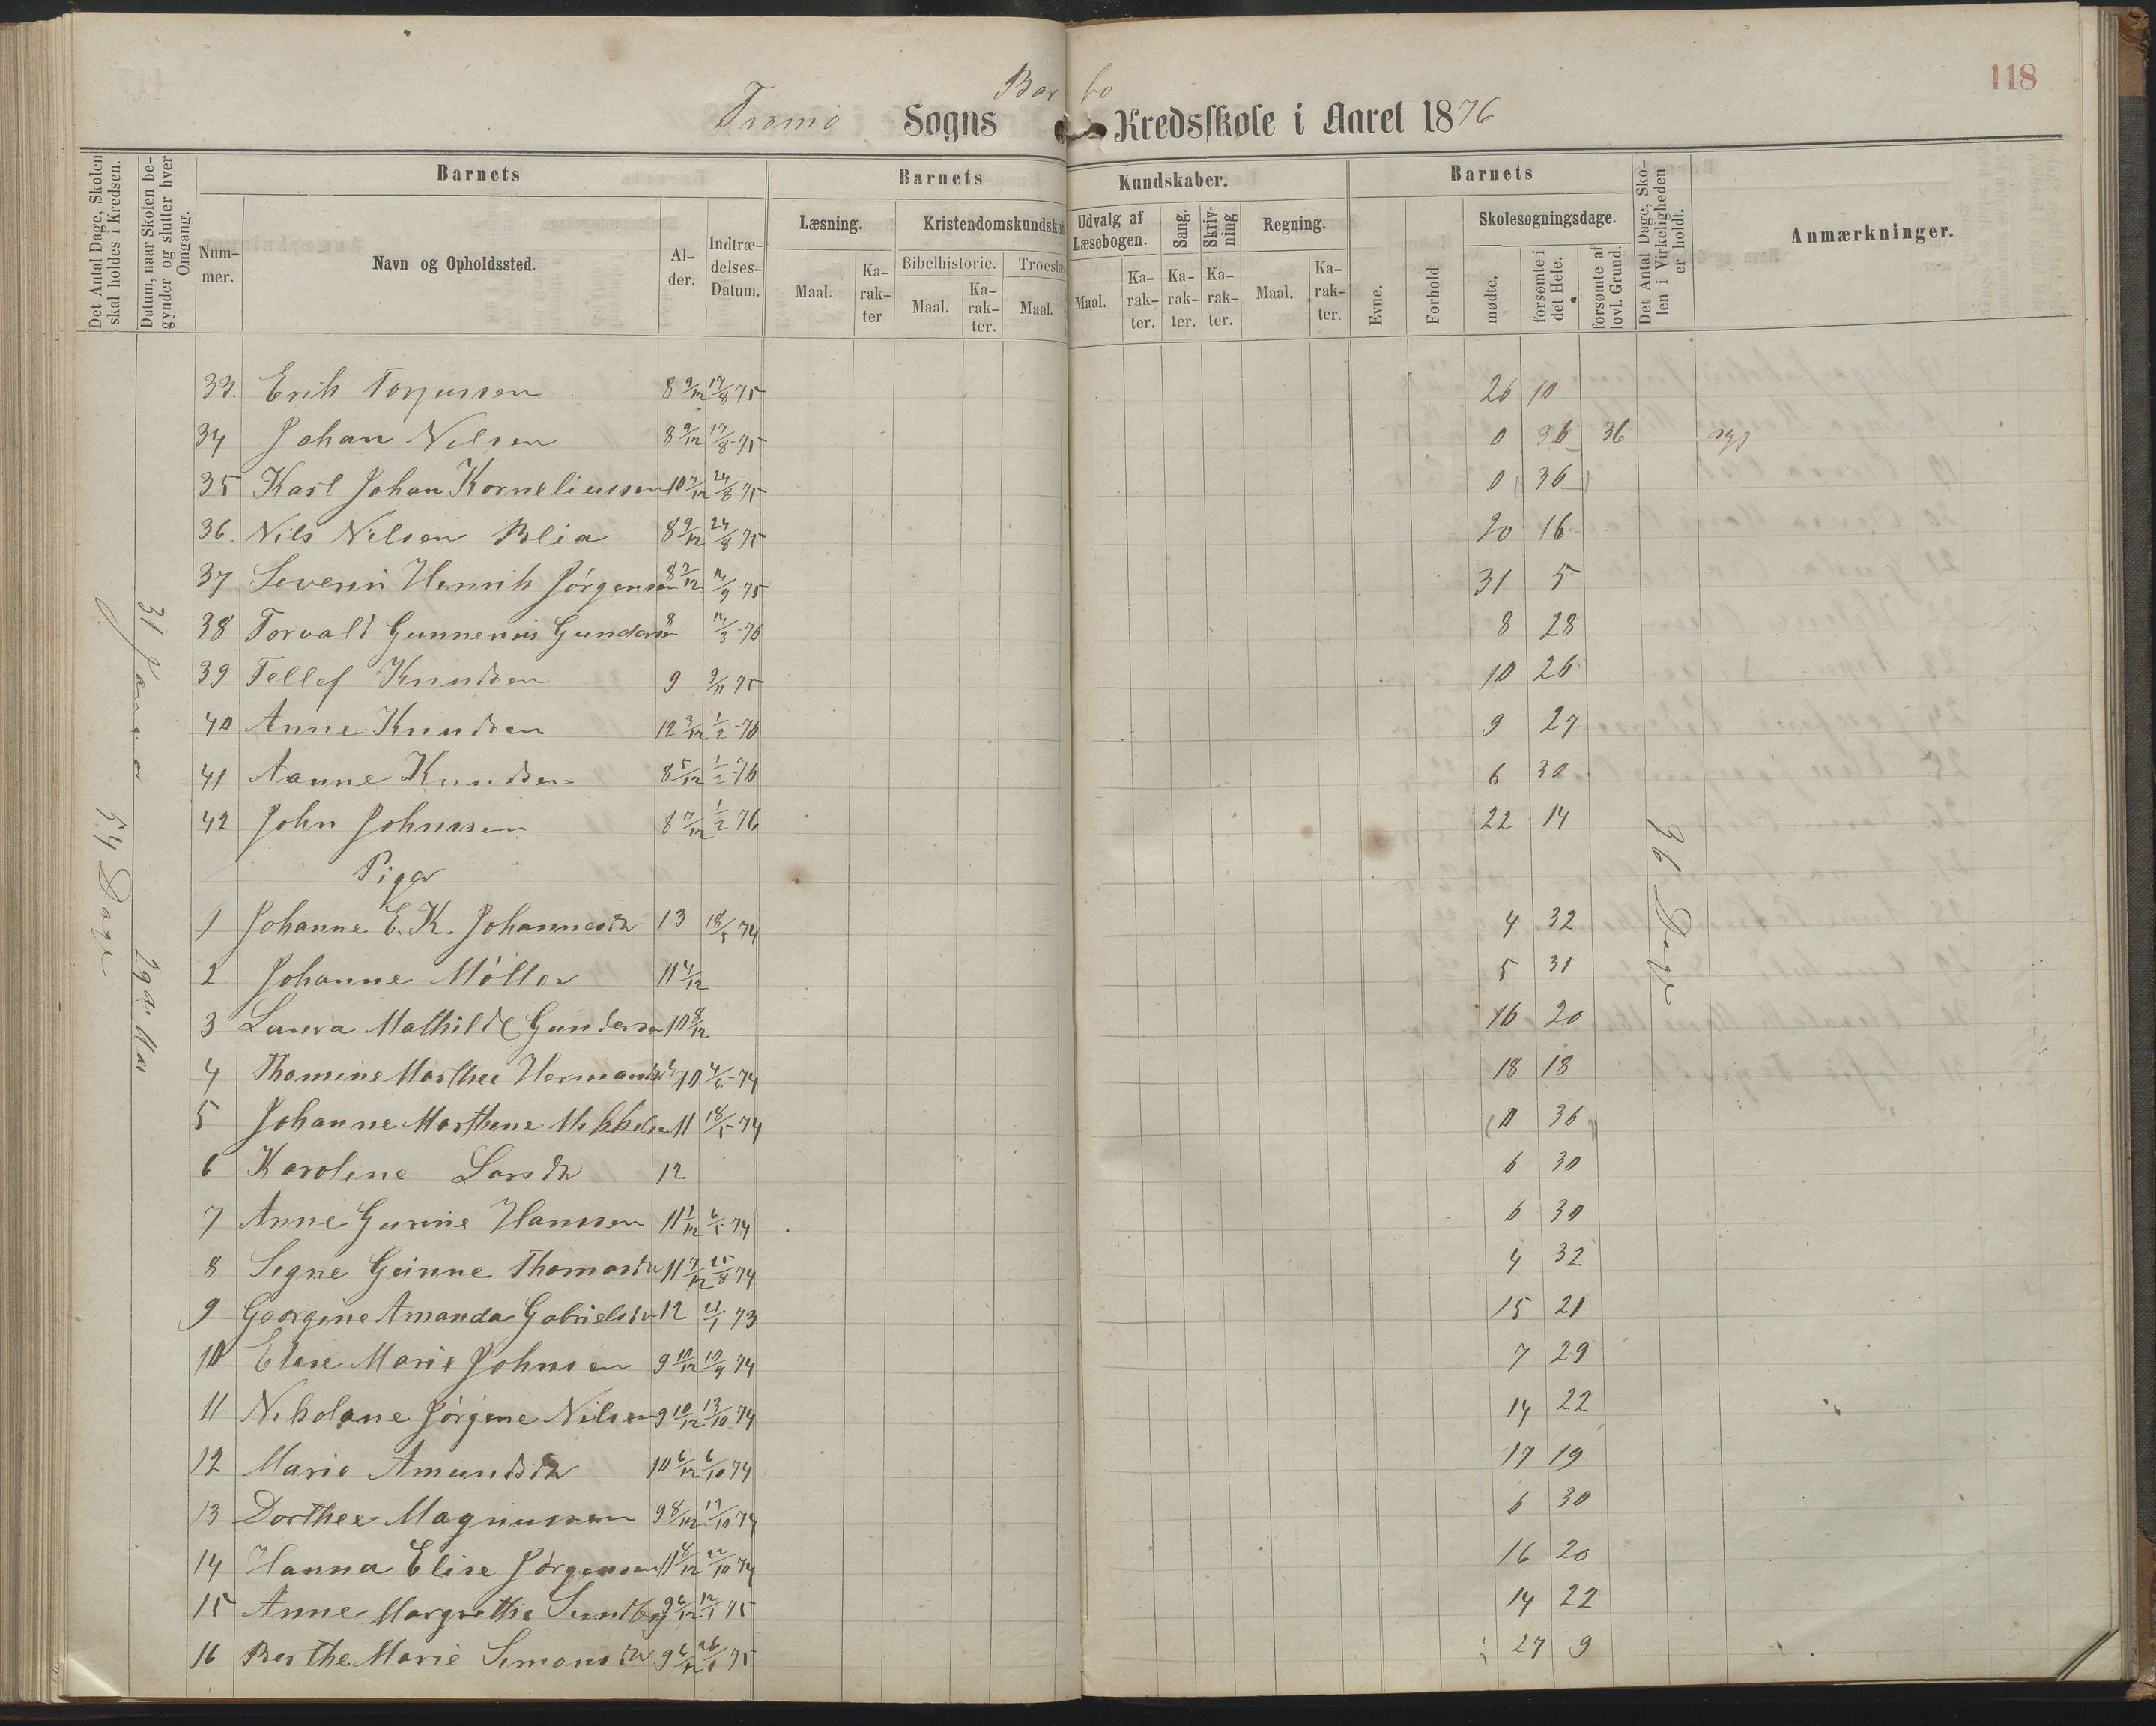 118
Barbo
Tromö Sogns Kredsskole i Aaret 1876
Det Antal Dage, Skolen skal holdes i Kredsen.
Datum, naar Skolen begynder og slutter hver Omgang.
Barnets
Barnets
Kundskaber.
Barnets
Det Antal Dage, Skolen i Virkeligheden er holdt.
Anmærkninger.
Nummer.
Navn og Opholdssted.
Alder.
Indtrædelses-Datum.
Læsning.
Kristendomskundskab
Udvalg af Læsebogen.
Sang.
Skrivning
Regning.
Evne.
Forhold
Skolesøgningsdage.
Bibelhistorie.
Troeslæ
Maal.
Karakter
Maal.
Karakter.
Maal.
Maal.
Karakter.
Karakter.
Karakter.
Maal.
Karakter.
mødte.
forsømte i det Hele.
forsømte af lovl. Grund.
54 Dage
31 Januar
29de Mai
36 Dage
33. Erik Torjussen 8 9/12 17/8 75 26 10
34 Johan Nilsen 8 9/12 17/8-75 0 36 36 syg
35 Karl Johan Korneliussen 10 7/12 24/8 75 0 36
36. Nils Nilsen Blia 8 9/12 24/8 75 20 16
37 Severin Henrik Jörgensen 8 7/12 /9-75 31 5
38 Torvald Gunnenius Gundersen 8 /3-76 8 28
39 Tellef Knudsen 9 9/11 75 10 26
40 Anne Knudsen 12 3/12 1/2-76 9 27
41 Nanne Knudsen 8 5/12 1/2-76 6 30
42 John Johnssen 8 7/12 1/2 76 22 14
Piger
1 Johanne E. K. Johannesdr 13 18/5 74 4 32
2 Johanne Möller 11 4/12 5 31
3 Laura Mathilde Gundersen 10 8/12 16 20
4 Thomine Marthee Hermandsdr 10 4/6-74 18 18
5 Johanne Marthene Mikkelsen 11 18/5 74 0 36
6 Karoline Larsdr 12 6 30
7 Anne Gurine Hanssen 11 1/12 6/5 74 6 30
8 Segne Geinne Thomasdr 11 7/12 25/8 74 4 32
9 Georgine Amanda Gabrielsdr 12 21/1 73 15 21
10 Elise Marie Johnsen 9 10/12 10/9 74 7 29
11 Nikoline Jörgine Nilsen 9 10/12 13/10 74 14 22
12 Marie Amundsdr 10 6/12 6/10 74 17 19
13 Dorthee Magnussen 9 8/12 17/10 74 6 30
14 Hanna Elise Jörgensen 11 8/12 22/10 74 16 20
15 Anne Margrethe Sundby 9 6/12 12/1 75 14 22
16 Berthe Marie Simonsdr 9 6/12 26/1 75 27 9